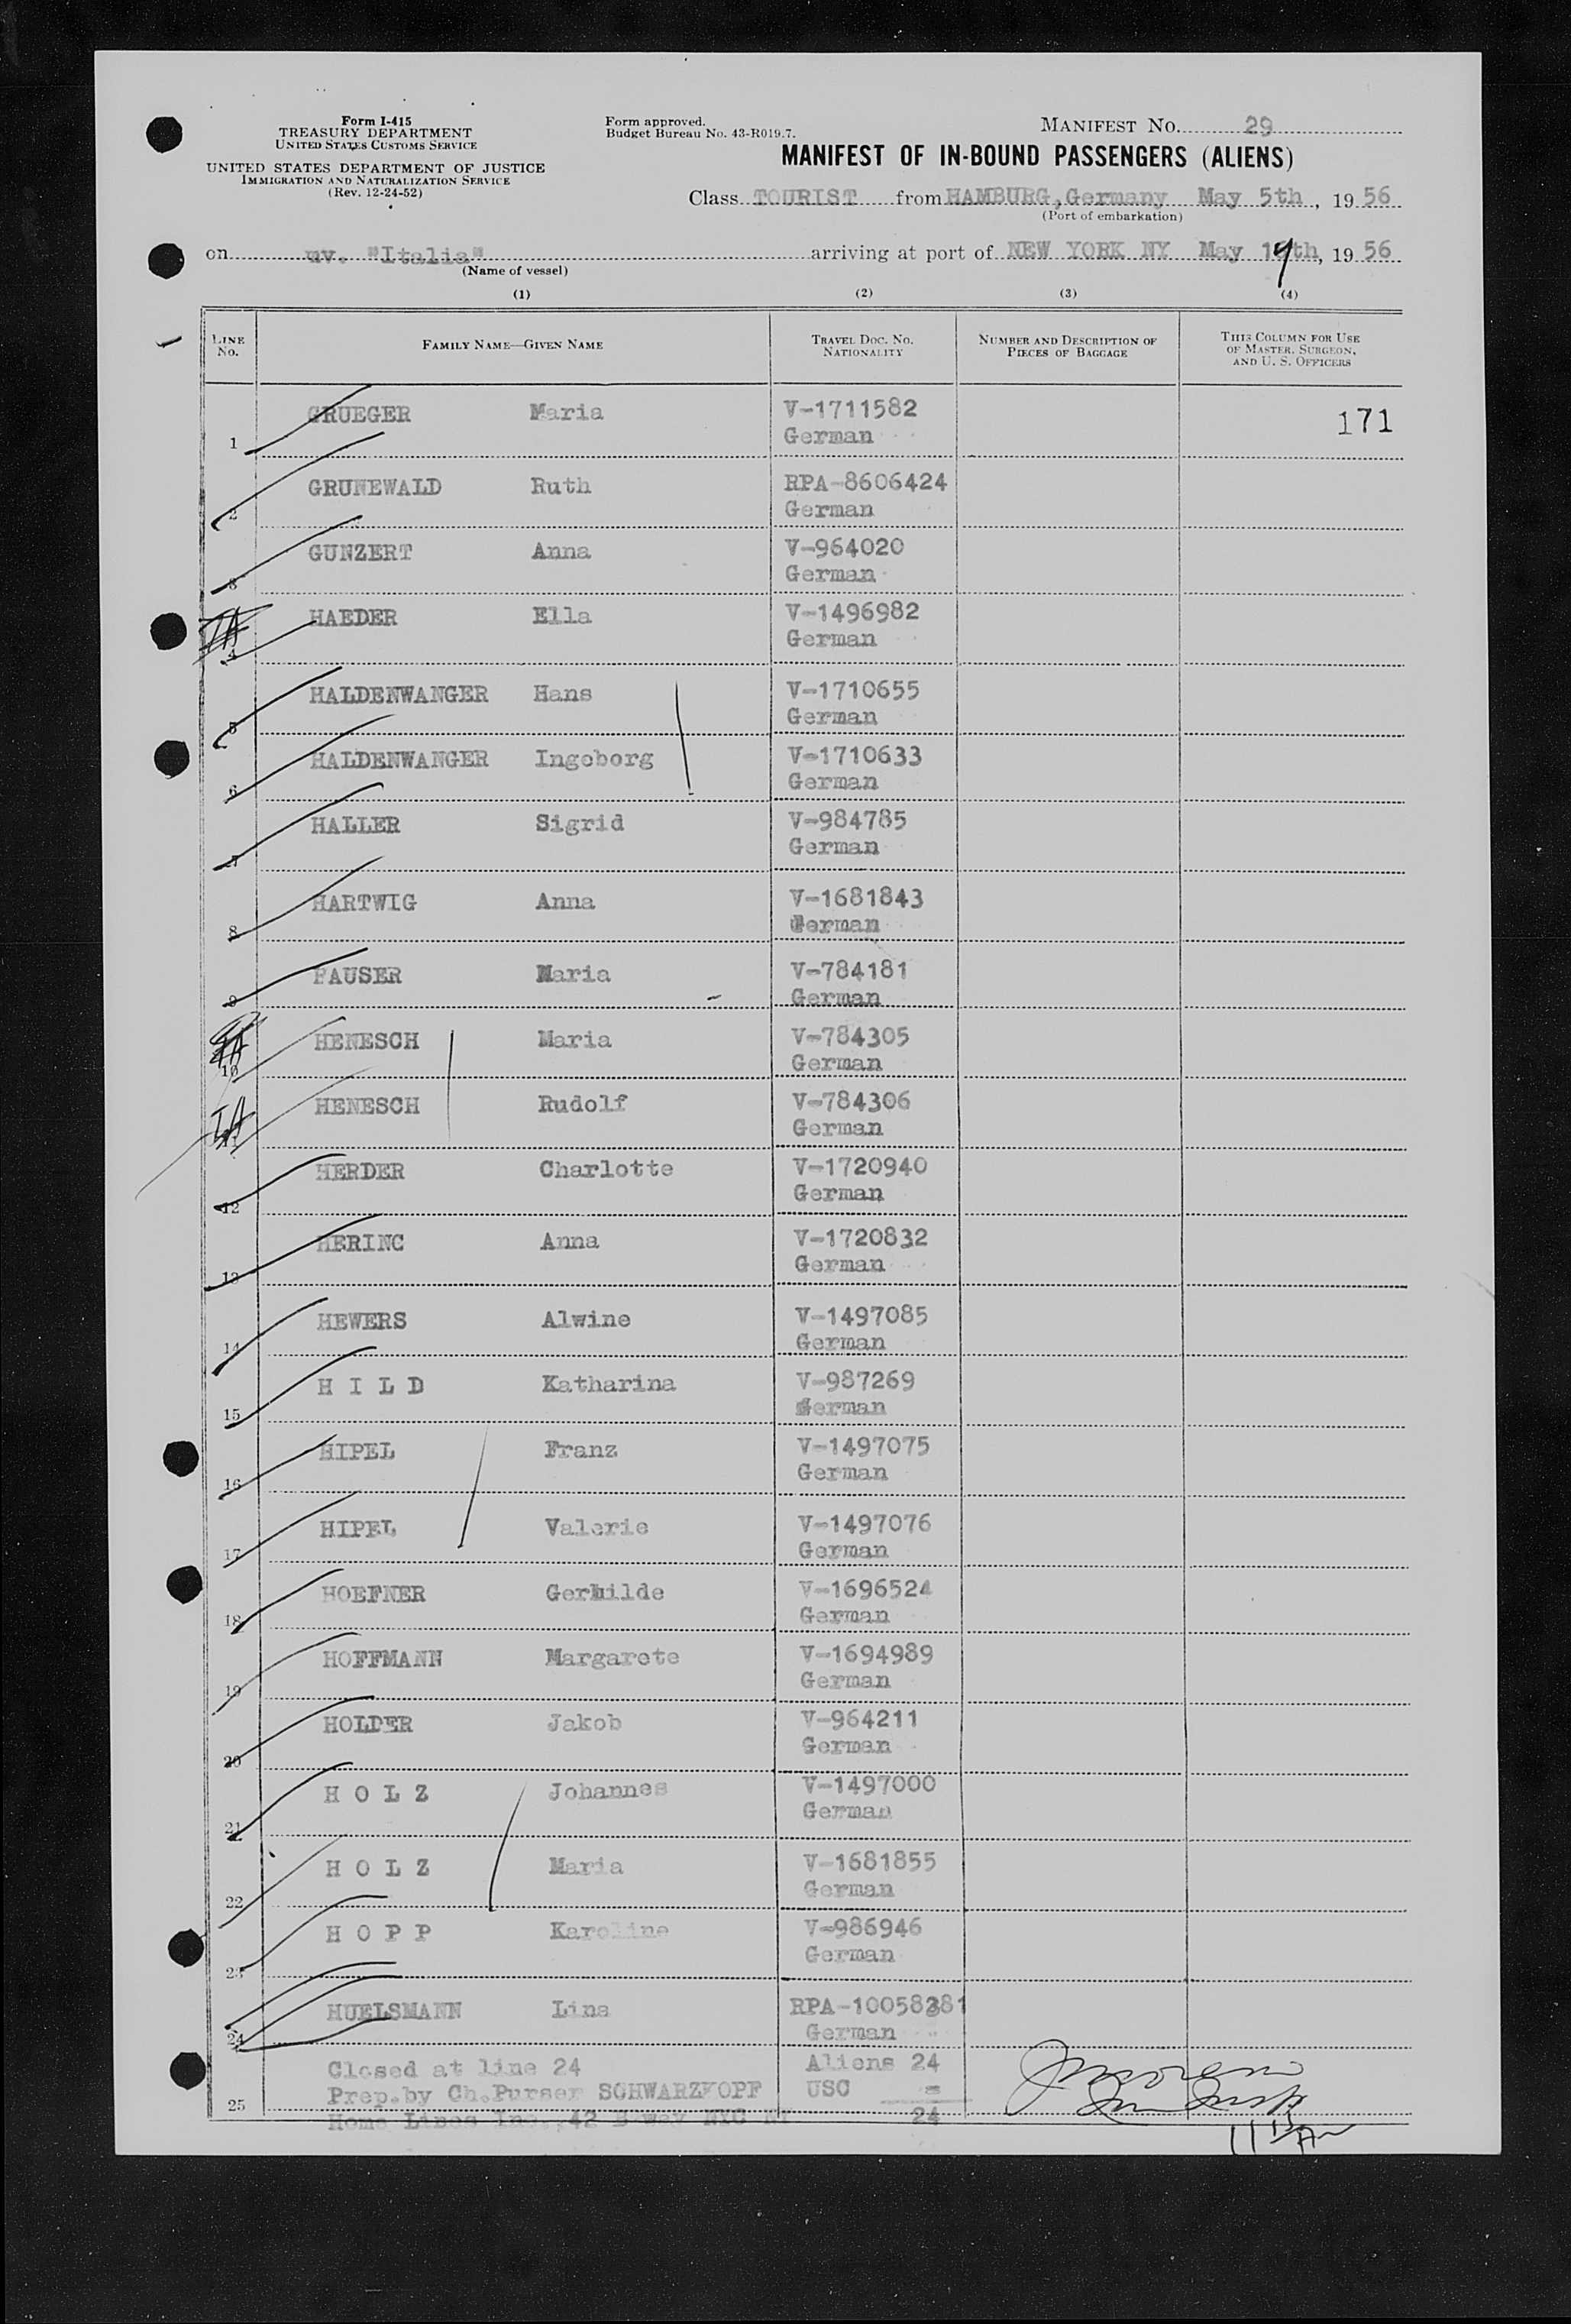 Form I-415
TREASURY DEPARTMENT
UNITED STATES CUSTOMS SERVICE
UNITED STATES DEPARTMENT OF JUSTICE
IMMIGRATION AND NATURALIZATION SERVICE
(Rev. 12-24-52)
Form approved.
Budget Bureau No. 43-R019.7.
MANIFEST NO. 29
MANIFEST OF IN-BOUND PASSENGERS (ALIENS)
Class TOURIST from HAMBURG, Germany May 5th, 1956
(Port of embarkation)
on mv. "Italia" arriving at port of NEW YORK NY May 1 th, 1956
(Name of vessel)
(1) (2) (3) (4)
LINE No. FAMILY NAME—GIVEN NAME TRAVEL DOC. NO. NATIONALITY NUMBER AND DESCRIPTION OF PIECES OF BAGGAGE THIS COLUMN FOR USE OF MASTER, SURGEON, AND U. S. OFFICERS
1 GRUEGER Maria V-1711582 171
German
2 GRUNEWALD Ruth RPA-8606424
German
3 GUNZERT Anna V-964020
German
4 HAEDER Ella V-1496982
German
5 HALDENWANGER Hans V-1710655
German
6 HALDENWANGER Ingeborg V-1710633
German
7 HALLER Sigrid V-984785
German
8 HARTWIG Anna V-1681843
German
9 HAUSER Maria V-784181
German
10 HENESCH Maria V-784305
German
IA
HENESCH Rudolf V-784306
German
12 HERDER Charlotte V-1720940
German
13 HERINC Anna V-1720832
German
14 HEWERS Alwine V-1497085
German
15 H I L D Katharina V-987269
German
16 HIPEL Franz V-1497075
German
17 HIPEL Valerie V-1497076
German
18 HOEFNER Gerhilde V-1696524
German
19 HOFFMANN Margarete V-1694989
German
20 HOLDER Jakob V-964211
German
21 H O L Z Johannes V-1497000
German
22 H O L Z Maria V-1681855
German
23 H O P P Karoline V-986946
German
24 HUELSMANN Lina
German
Closed at line 24 Aliens 24
25 Prep.by Ch.Purser SCHWARZKOPF USC =
Home Lines Inc.,42 B'way NYC NY 24